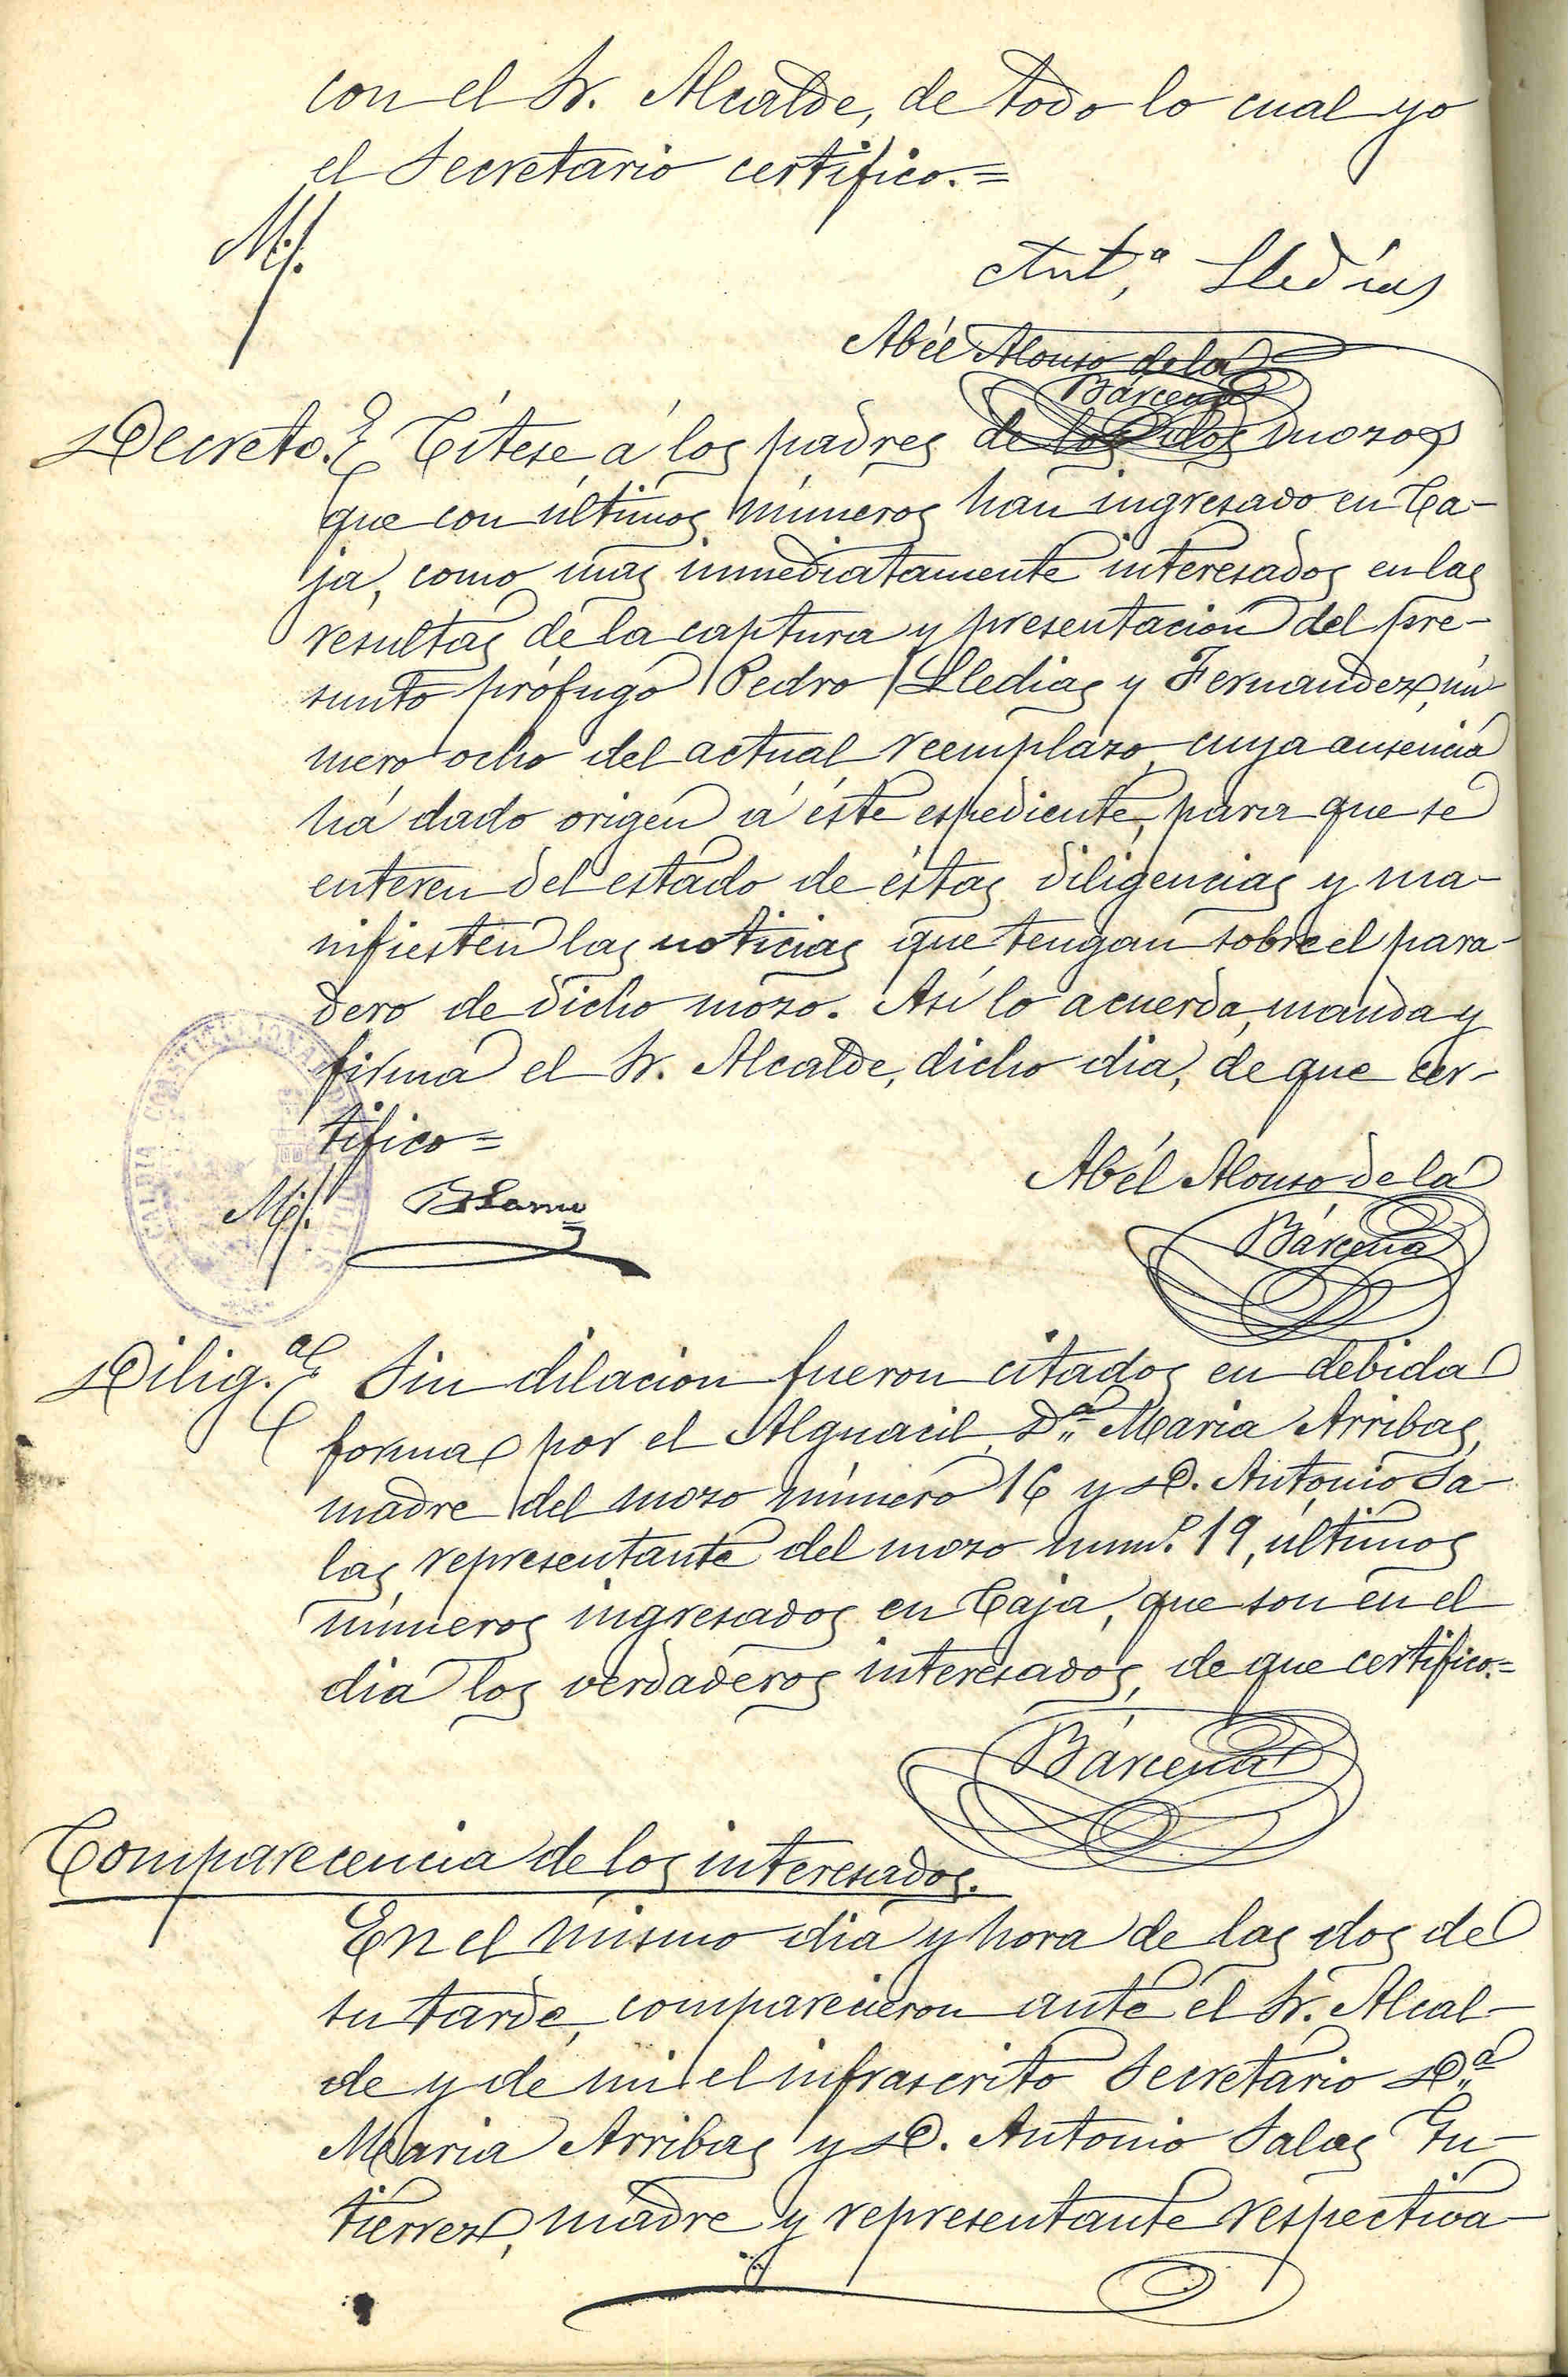 con el Sr. Alcalde, de todo lo cual yo
el Secretario certifico.=
Ant.ª Lledias
Abél Alonso de la
Bárcena
Decreto. Cítese á los padres de los dos mozos
que con últimos números han ingresado en Ca-
ja, como mas inmediatamente interesados en las
resultas de la captura y presentacion del pre-
sunto prófugo Pedro Lledias y Fernandez, nú-
mero ocho del actual reemplazo, cuya ausencia
há dado origen á éste espediente, para que se
enteren del estado de éstas diligencias y ma-
nifiesten las noticias que tengan sobre el para-
dero de dicho mozo. Así lo acuerda, manda y
firma el Sr. Alcalde, dicho dia, de que cer-
tifico=
Abél Alonso de la
Bárcena
ALCALDIA CONSTITUCIONAL
Dilig.ª Sin dilacion fueron citados en debida
forma por el Alguacil, D.ª Maria Arribas,
madre del mozo número 16 y D. Antonio Sa-
las, representante del mozo num.º 19, últimos
números ingresados en Caja, que son en el
dia los verdaderos interesados, de que certifico.=
Bárcena
Comparecencia de los interesados.
En el mismo dia y hora de las dos de
su tarde, comparecieron ante el Sr. Alcal-
de y de mi el infrascrito Secretario D.ª
Maria Arribas y D. Antonio Salas Gu-
tierrez, madre y representante respectiva-